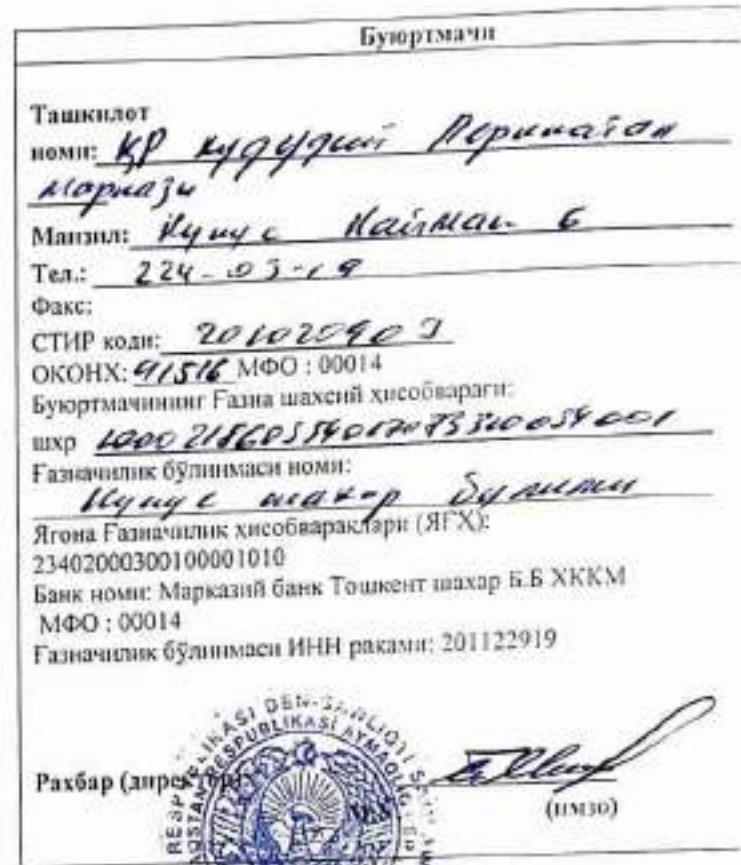 Буюртмачи
Ташкилот
номи: ҚР худудий Перинатал
маркази
Манзил: Нукус Найман 6
Тел.: 224-03-19
Факс:
СТИР коди:
ОКОНХ: 91516 МФО : 00014
Буюртмачининг Ғазна шахсий ҳисобварағи:
шхр
Ғазначилик бўлинмаси номи:
Нукус шахар булими
Ягона Ғазначилик ҳисобварақлари (ЯҒҲ):
23402000300100001010
Банк номи: Марказий банк Тошкент шахар Б.Б ХККМ
МФО : 00014
Ғазначилик бўлинмаси ИНН рақами: 201122919
Рахбар (директор)
(имзо)